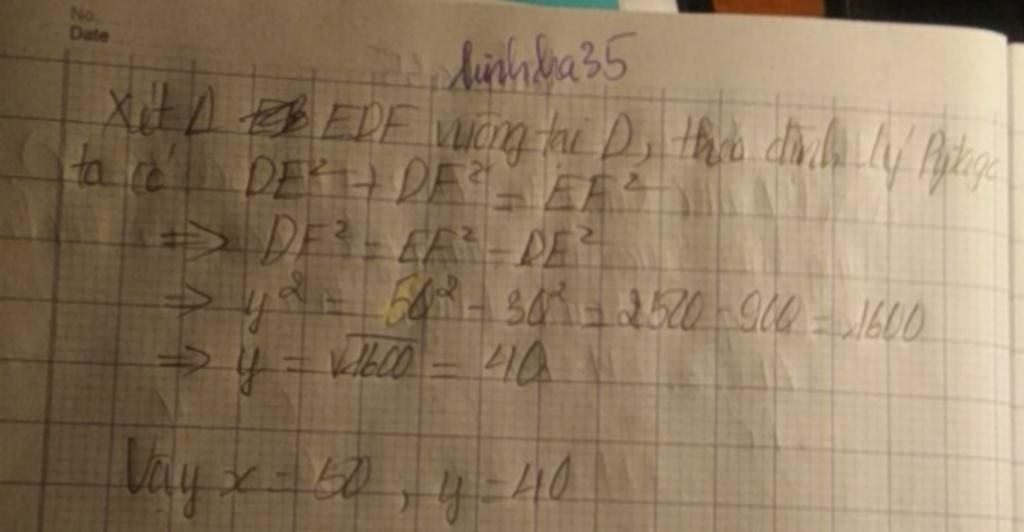 No.
Date
linhdra35
Xét Δ EDF vuông tại D, theo định lý Pytago
ta có DE² + DF² = EF²
=> DF² = EF² - DE²
=> y² = 50² - 30² = 2500 - 900 = 1600
=> y = √1600 = 40
Vậy x = 50, y = 40